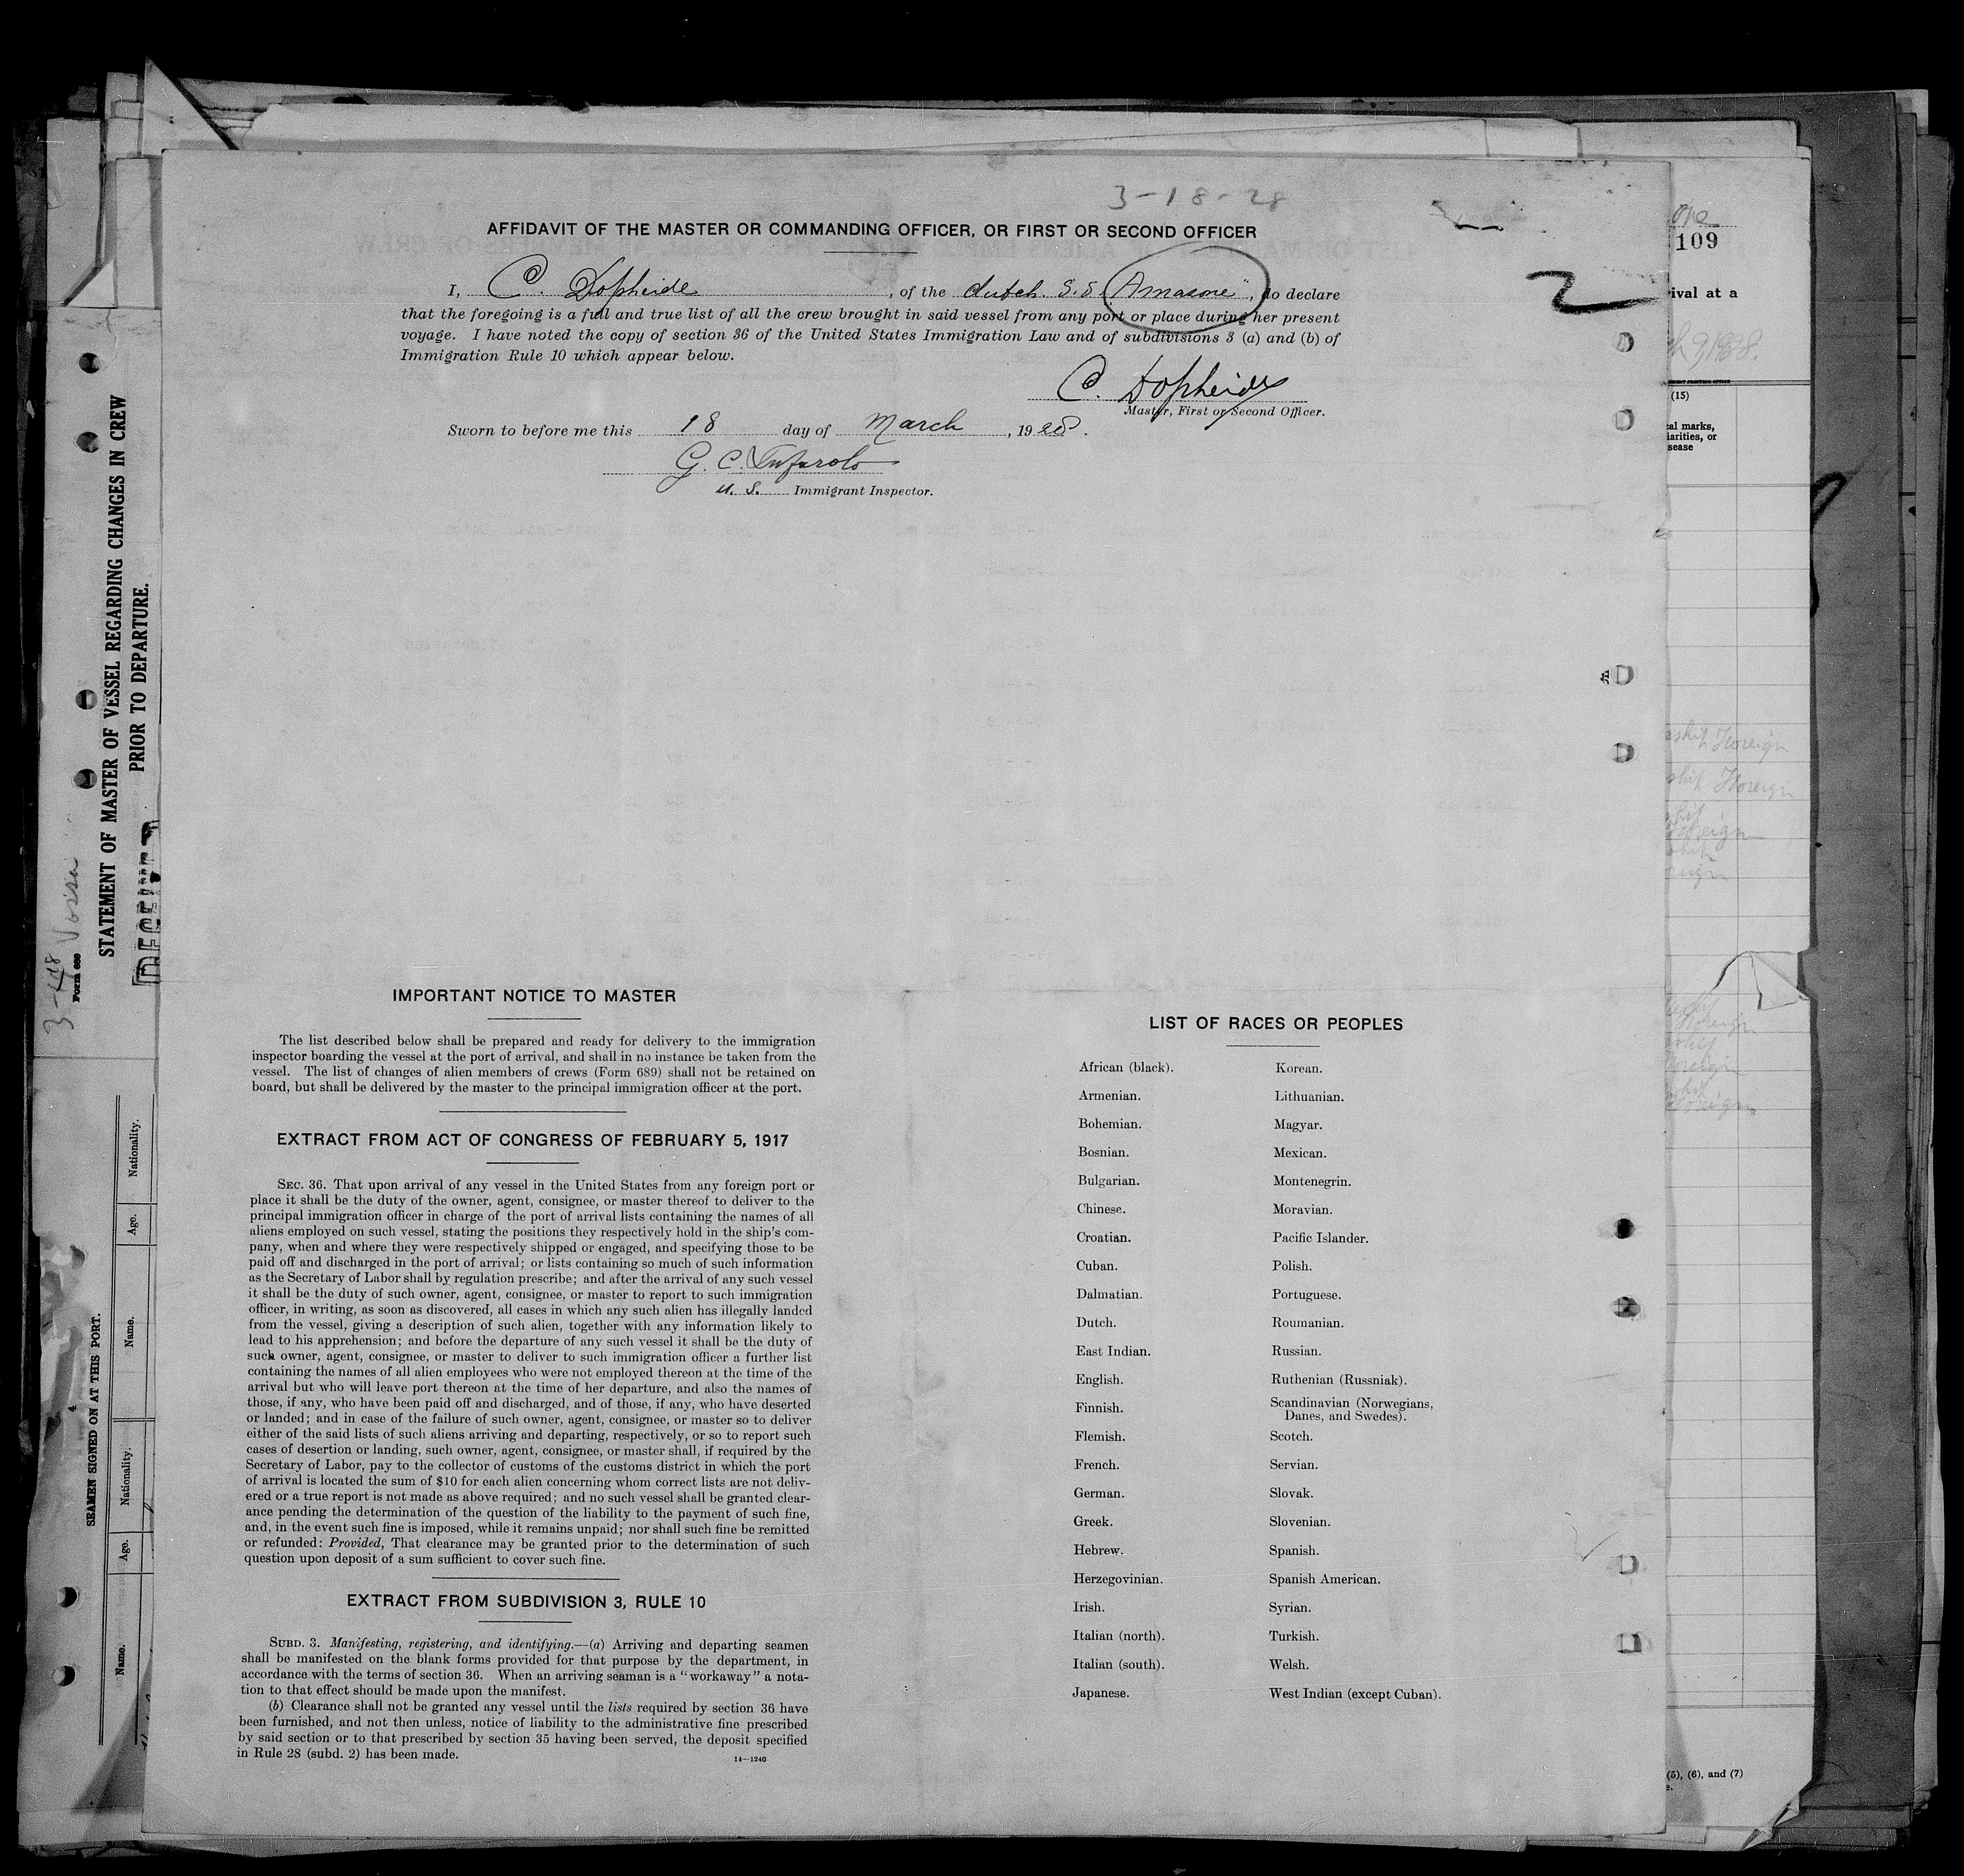 3-18-28
AFFIDAVIT OF THE MASTER OR COMMANDING OFFICER, OR FIRST OR SECOND OFFICER
I, C. Dopheide, of the dutch S.S. "Amasone", do declare
that the foregoing is a full and true list of all the crew brought in said vessel from any port or place during her present
voyage. I have noted the copy of section 36 of the United States Immigration Law and of subdivisions 3 (a) and (b) of
Immigration Rule 10 which appear below.
C. Dopheide
Master, First or Second Officer.
Sworn to before me this 18 day of March, 1928.
G. C.
U. S. Immigrant Inspector.
2
IMPORTANT NOTICE TO MASTER
The list described below shall be prepared and ready for delivery to the immigration
inspector boarding the vessel at the port of arrival, and shall in no instance be taken from the
vessel. The list of changes of alien members of crews (Form 689) shall not be retained on
board, but shall be delivered by the master to the principal immigration officer at the port.
EXTRACT FROM ACT OF CONGRESS OF FEBRUARY 5, 1917
SEC. 36. That upon arrival of any vessel in the United States from any foreign port or
place it shall be the duty of the owner, agent, consignee, or master thereof to deliver to the
principal immigration officer in charge of the port of arrival lists containing the names of all
aliens employed on such vessel, stating the positions they respectively hold in the ship's com-
pany, when and where they were respectively shipped or engaged, and specifying those to be
paid off and discharged in the port of arrival; or lists containing so much of such information
as the Secretary of Labor shall by regulation prescribe; and after the arrival of any such vessel
it shall be the duty of such owner, agent, consignee, or master to report to such immigration
officer, in writing, as soon as discovered, all cases in which any such alien has illegally landed
from the vessel, giving a description of such alien, together with any information likely to
lead to his apprehension; and before the departure of any such vessel it shall be the duty of
such owner, agent, consignee, or master to deliver to such immigration officer a further list
containing the names of all alien employees who were not employed thereon at the time of the
arrival but who will leave port thereon at the time of her departure, and also the names of
those, if any, who have been paid off and discharged, and of those, if any, who have deserted
or landed; and in case of the failure of such owner, agent, consignee, or master so to deliver
either of the said lists of such aliens arriving and departing, respectively, or so to report such
cases of desertion or landing, such owner, agent, consignee, or master shall, if required by the
Secretary of Labor, pay to the collector of customs of the customs district in which the port
of arrival is located the sum of $10 for each alien concerning whom correct lists are not deliv-
ered or a true report is not made as above required; and no such vessel shall be granted clear-
ance pending the determination of the question of the liability to the payment of such fine,
and, in the event such fine is imposed, while it remains unpaid; nor shall such fine be remitted
or refunded: Provided, That clearance may be granted prior to the determination of such
question upon deposit of a sum sufficient to cover such fine.
EXTRACT FROM SUBDIVISION 3, RULE 10
SUBD. 3. Manifesting, registering, and identifying.—(a) Arriving and departing seamen
shall be manifested on the blank forms provided for that purpose by the department, in
accordance with the terms of section 36. When an arriving seaman is a "workaway" a nota-
tion to that effect should be made upon the manifest.
(b) Clearance shall not be granted any vessel until the lists required by section 36 have
been furnished, and not then unless, notice of liability to the administrative fine prescribed
by said section or to that prescribed by section 35 having been served, the deposit specified
in Rule 28 (subd. 2) has been made.
14—1240
LIST OF RACES OR PEOPLES
African (black).
Armenian.
Bohemian.
Bosnian.
Bulgarian.
Chinese.
Croatian.
Cuban.
Dalmatian.
Dutch.
East Indian.
English.
Finnish.
Flemish.
French.
German.
Greek.
Hebrew.
Herzegovinian.
Irish.
Italian (north).
Italian (south).
Japanese.
Korean.
Lithuanian.
Magyar.
Mexican.
Montenegrin.
Moravian.
Pacific Islander.
Polish.
Portuguese.
Roumanian.
Russian.
Ruthenian (Russniak).
Scandinavian (Norwegians,
Danes, and Swedes).
Scotch.
Servian.
Slovak.
Slovenian.
Spanish.
Spanish American.
Syrian.
Turkish.
Welsh.
West Indian (except Cuban).
Form 689
STATEMENT OF MASTER OF VESSEL REGARDING CHANGES IN CREW
PRIOR TO DEPARTURE.
SEAMEN SIGNED ON AT THIS PORT.
4
Name.
Age.
Nationality.
Name.
Age.
Nationality.
109
ival at a
(15)
cal marks,
iarities, or
sease
Foreign
Foreign
(5), (6), and (7)